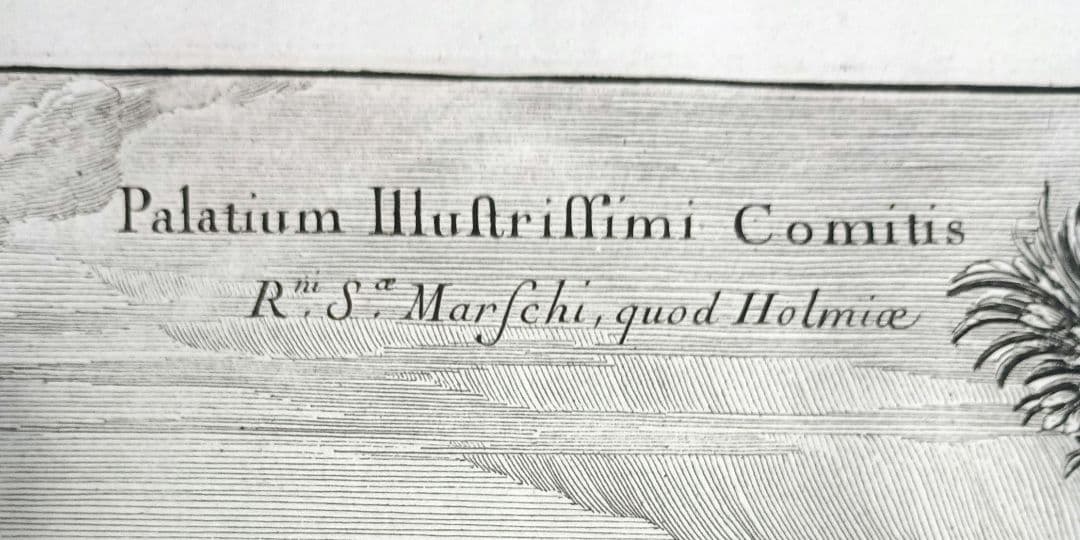 Palatium Illuſtriſſimi Comitis
R.ni S.æ Marſchi, quod Holmiæ